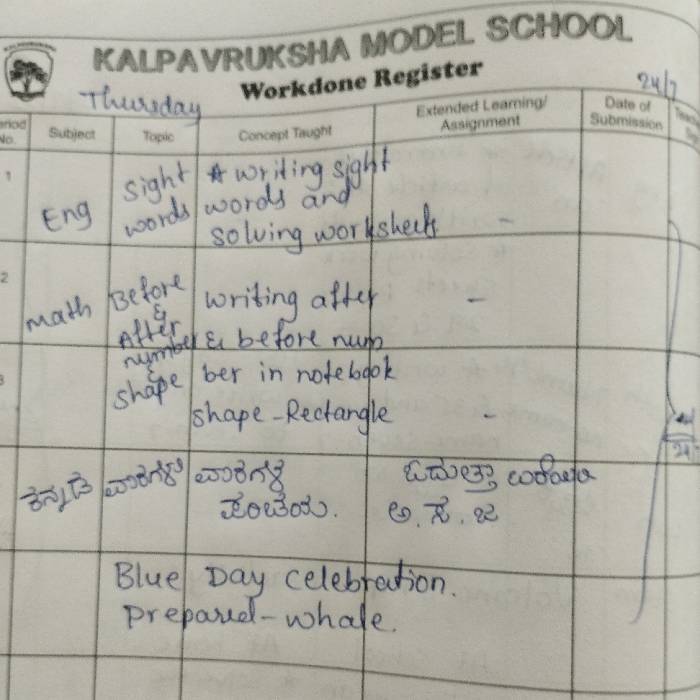 KALPAVRUKSHA MODEL SCHOOL
Workdone Register
Thursday 24/7
Period No. Subject Topic Concept Taught Extended Learning/ Assignment Date of Submission
1 Eng Sight words writing sight words and solving worksheets -
2 Math Before & After number & shape writing after & before num
ber in notebook -
shape - Rectangle -
ಕನ್ನಡ ವಾಕಗಳು ವಾಕಗಳ ಓದುತ್ತಾ
ಅ. ಸ. ಜ
Blue Day celebration.
Prepared - whale.